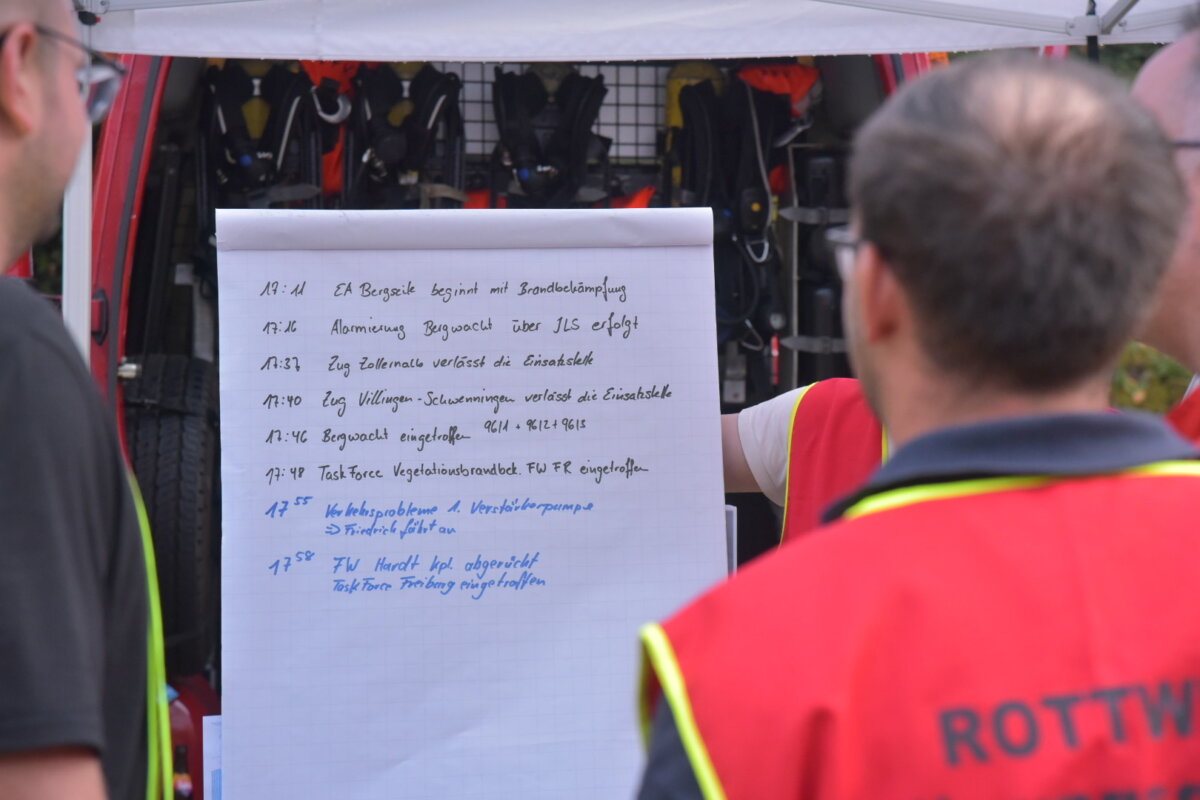 17:11 EA Bergseite beginnt mit Brandbekämpfung
17:16 Alarmierung Bergwacht über ILS erfolgt
17:37 Zug Zollernalb verlässt die Einsatzstelle
17:40 Zug Villingen-Schwenningen verlässt die Einsatzstelle
17:46 Bergwacht eingetroffen 96/1 + 96/2 + 96/3
17:48 Task Force Vegetationsbrandbek. FW FR eingetroffen
17 55 Verkehrsprobleme 1. Verstärkerpumpe
⇒ Friedrich fährt an
17 58 FW Hardt kpl. abgerückt
Task Force Freiburg eingetroffen
ROTTW